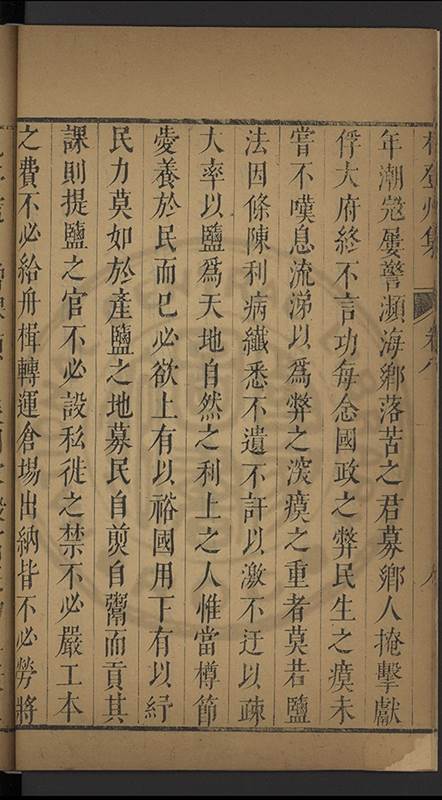 林登州集 卷八
年潮寇屢警瀕海鄉落苦之君募鄉人掩擊獻
俘大府終不言功每念國政之弊民生之瘼未
嘗不嘆息流涕以爲弊之深瘼之重者莫若鹽
法因條陳利病纖悉不遺不訐以激不迂以疎
大率以鹽爲天地自然之利上之人惟當樽節
愛養於民而已必欲上有以裕國用下有以紓
民力莫如於產鹽之地募民自煎自鬻而貢其
課則提鹽之官不必設私徙之禁不必嚴工本
之費不必給舟楫轉運倉場出納皆不必勞將